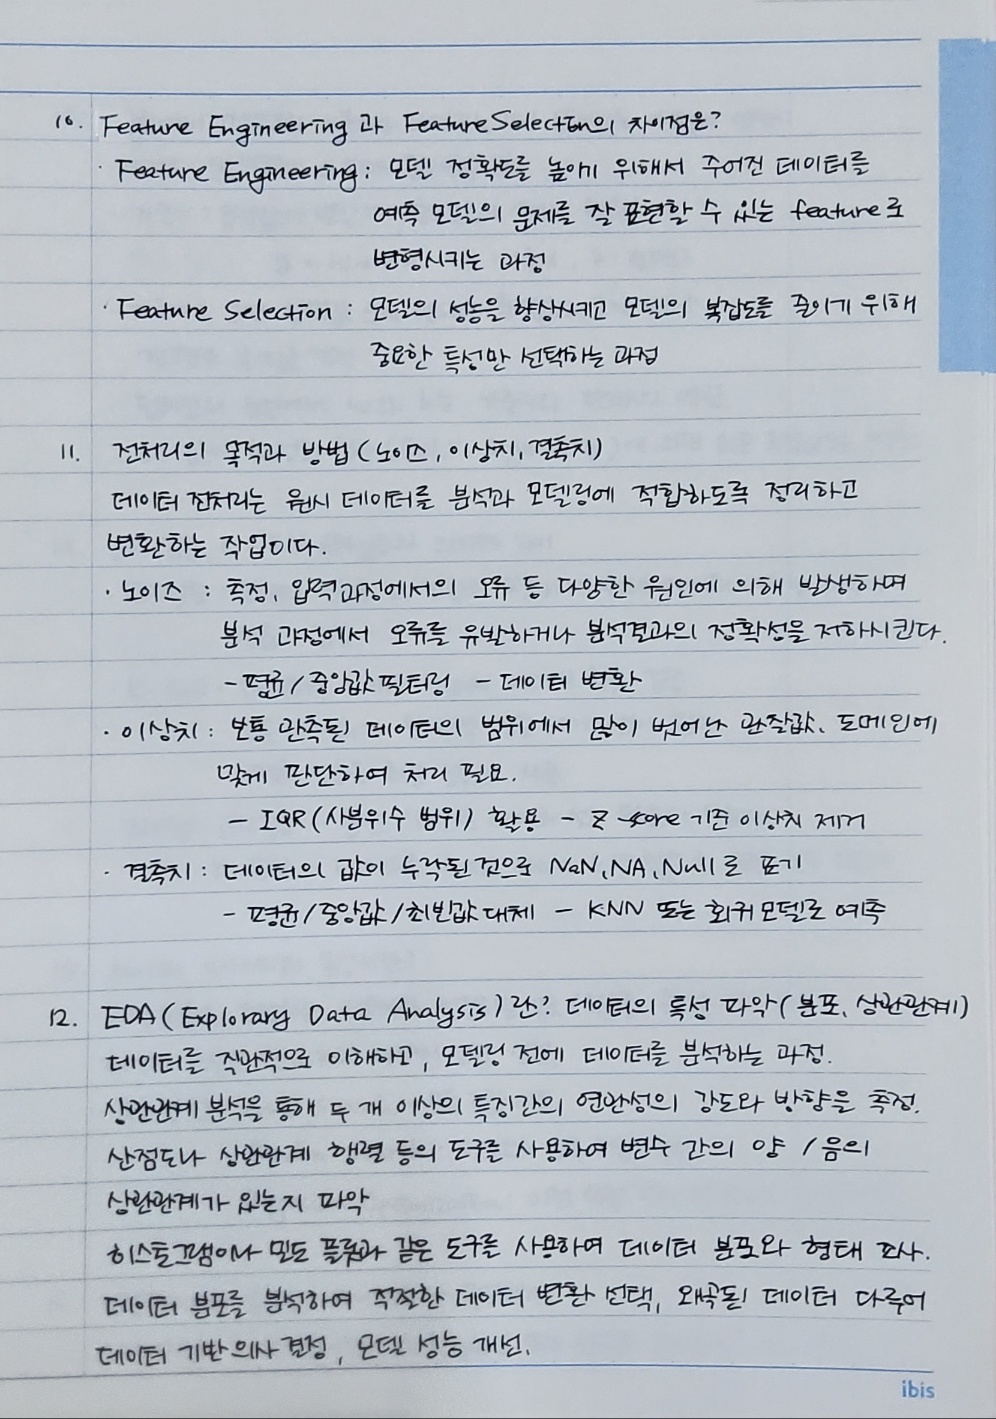 10. Feature Engineering 과 Feature Selection의 차이점은?
· Feature Engineering : 모델 정확도를 높이기 위해서 주어진 데이터를
예측 모델의 문제를 잘 표현할 수 있는 feature로
변형시키는 과정
· Feature Selection : 모델의 성능을 향상시키고 모델의 복잡도를 줄이기 위해
중요한 특성만 선택하는 과정
11. 전처리의 목적과 방법 (노이즈, 이상치, 결측치)
데이터 전처리는 원시 데이터를 분석과 모델링에 적합하도록 정리하고
변환하는 작업이다.
· 노이즈 : 측정, 입력과정에서의 오류 등 다양한 원인에 의해 발생하며
분석 과정에서 오류를 유발하거나 분석결과의 정확성을 저하시킨다.
- 평균/중앙값 필터링 - 데이터 변환
· 이상치 : 보통 관측된 데이터의 범위에서 많이 벗어난 관찰값. 도메인에
맞게 판단하여 처리 필요.
- IQR (사분위수 범위) 활용 - Z-score 기준 이상치 제거
· 결측치 : 데이터의 값이 누락된 것으로 NaN, NA, Null로 표기
- 평균/중앙값/최빈값 대체 - KNN 또는 회귀 모델로 예측
12. EDA (Explorary Data Analysis) 란? 데이터의 특성 파악 (분포, 상관관계)
데이터를 직관적으로 이해하고, 모델링 전에 데이터를 분석하는 과정.
상관관계 분석을 통해 두 개 이상의 특징간의 연관성의 강도와 방향을 측정.
산점도나 상관관계 행렬 등의 도구를 사용하여 변수 간의 양 / 음의
상관관계가 있는지 파악
히스토그램이나 밀도 플롯과 같은 도구를 사용하여 데이터 분포와 형태 조사.
데이터 분포를 분석하여 적절한 데이터 변환 선택, 왜곡된 데이터 다루어
데이터 기반 의사 결정, 모델 성능 개선.
ibis